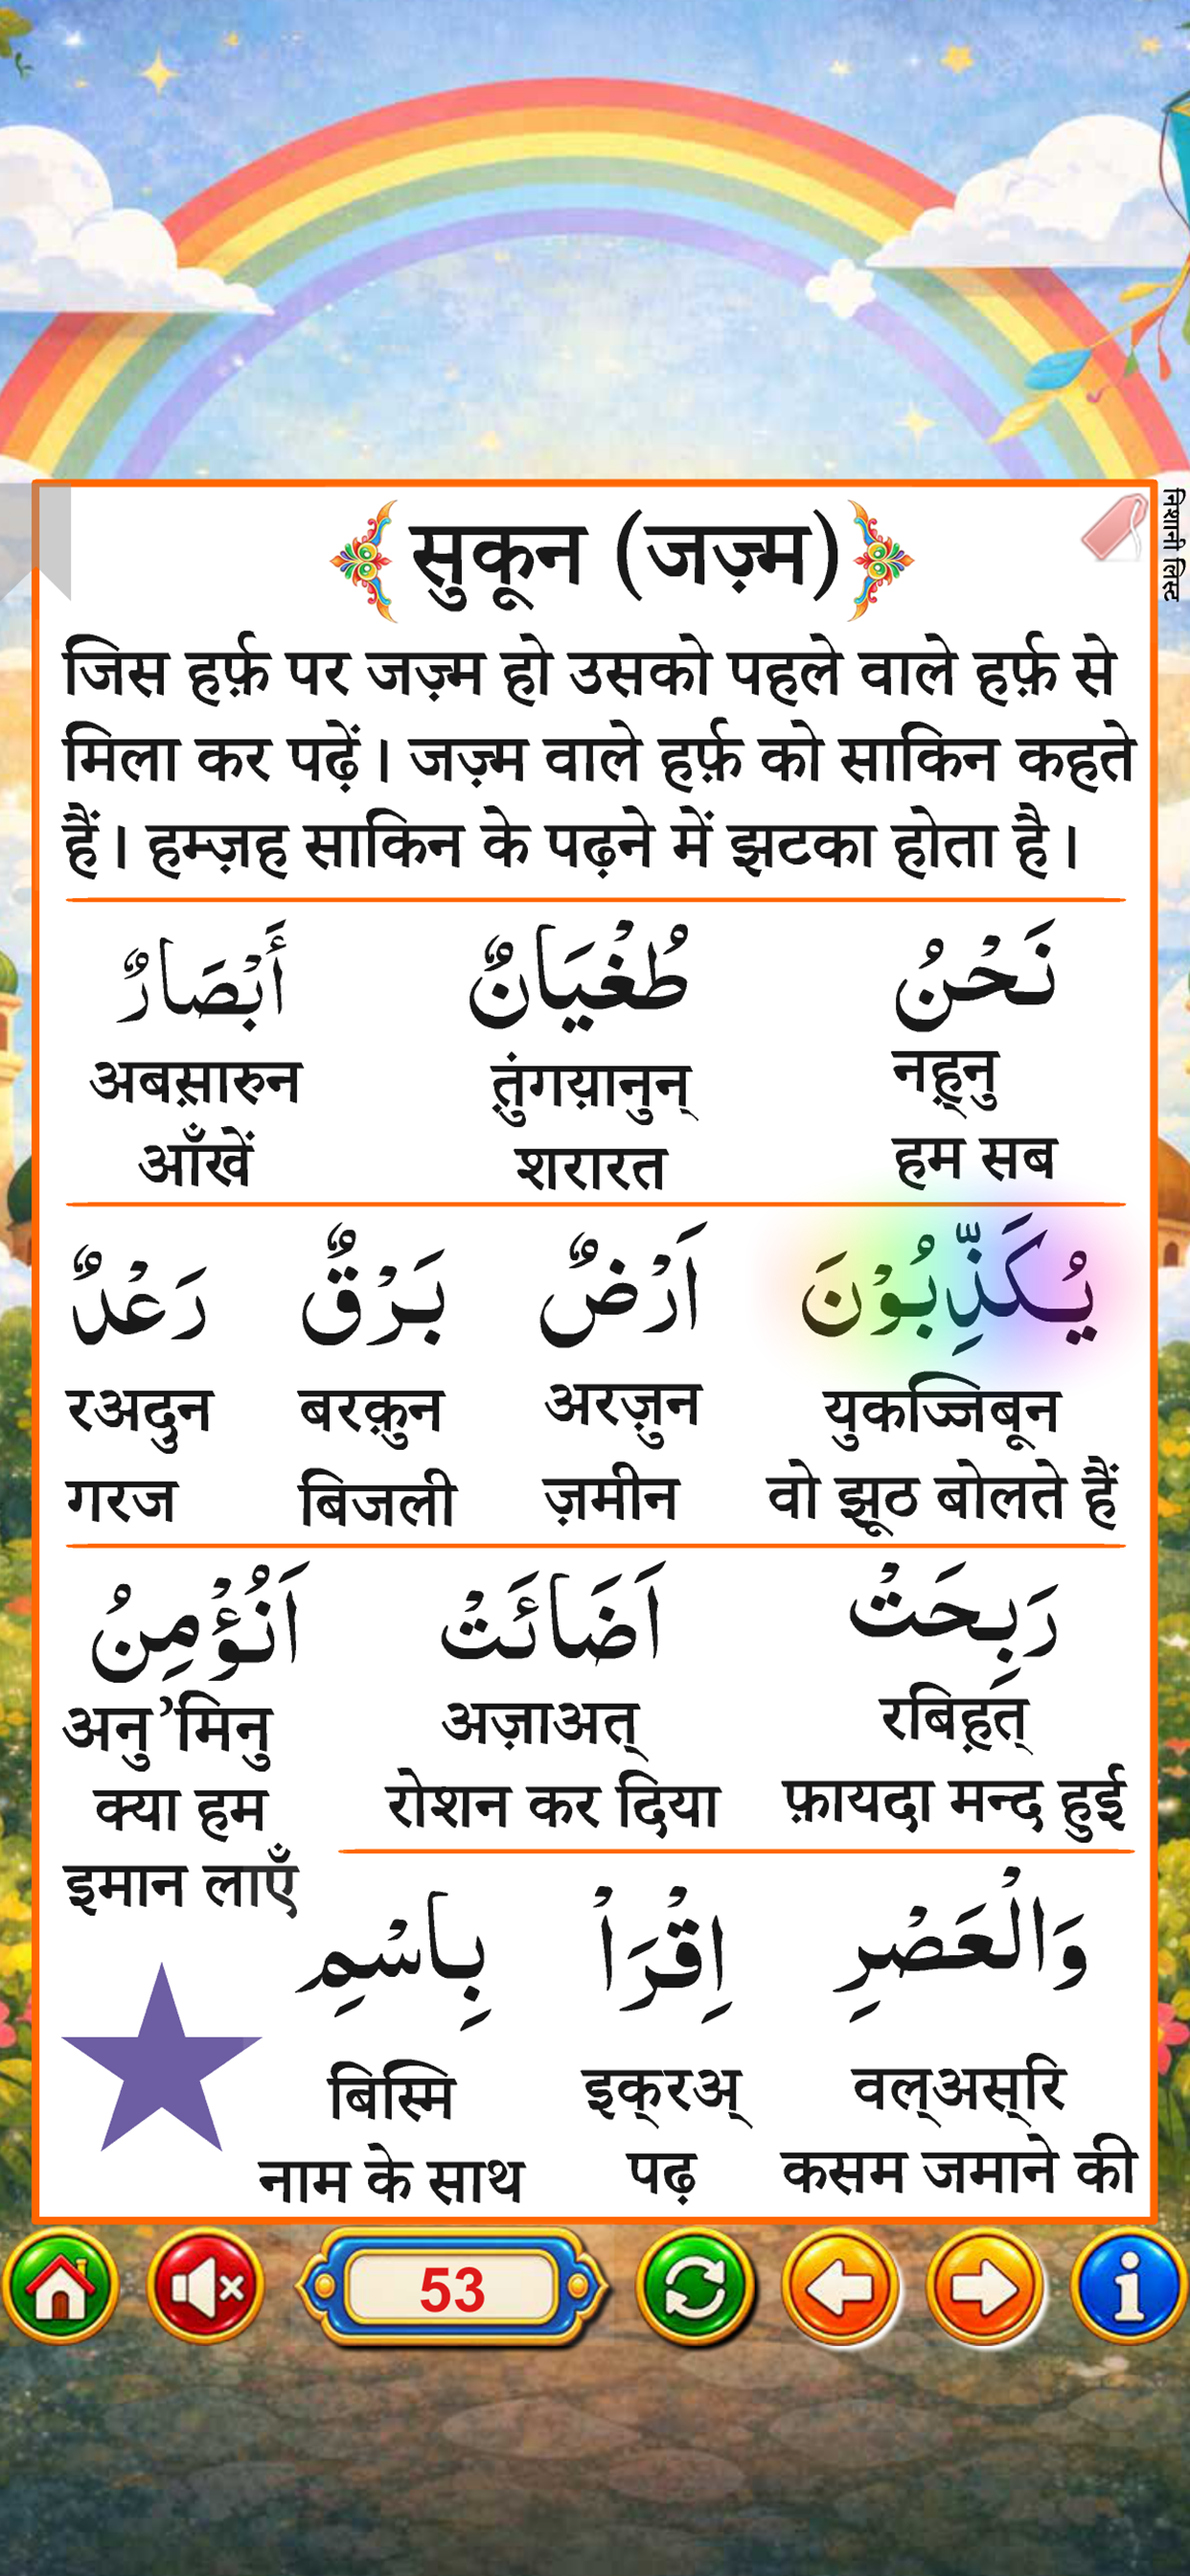 सुकून (जज़्म)
निशानी लिस्ट
जिस हर्फ़ पर जज़्म हो उसको पहले वाले हर्फ़ से
मिला कर पढ़ें। जज़्म वाले हर्फ़ को साकिन कहते
हैं। हम्ज़ह साकिन के पढ़ने में झटका होता है।
نَحْنُ طُغْيَانٌ أَبْصَارٌ
अबस़ारुन त़ुंगय़ानुन् नह़्नु
आँखें शरारत हम सब
يُكَذِّبُوْنَ اَرْضٌ بَرْقٌ رَعْدٌ
रअदुन बरक़ुन अरज़ुन युकज्जिबून
गरज बिजली ज़मीन वो झूठ बोलते हैं
رَبِحَتْ اَضَائَتْ اَنُؤْمِنُ
अनु’मिनु अज़ाअत् रबिह़त्
क्या हम रोशन कर दिया फ़ायदा मन्द हुई
इमान लाएँ
وَالْعَصْرِ اِقْرَاْ بِاسْمِ
बिस्मि इक्‌रअ् वल्‌अस्‌रि
नाम के साथ पढ़ कसम जमाने की
53